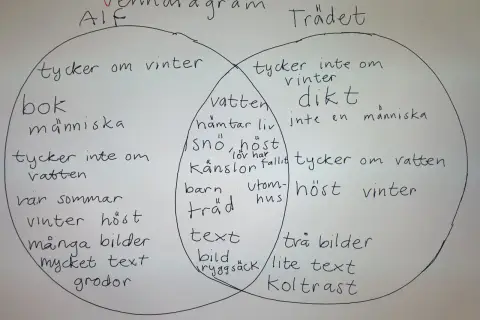 Venndiagram
Alf
Trädet
tycker om vinter
bok
människa
tycker inte om
vatten
var sommar
vinter höst
många bilder
mycket text
grodor
vatten
hämtar liv
snö, höst
löv har
fallit
känslor
barn
utom-
hus
träd
text
bild
ryggsäck
tycker inte om
vinter
dikt
inte en människa
tycker om vatten
höst vinter
två bilder
lite text
koltrast